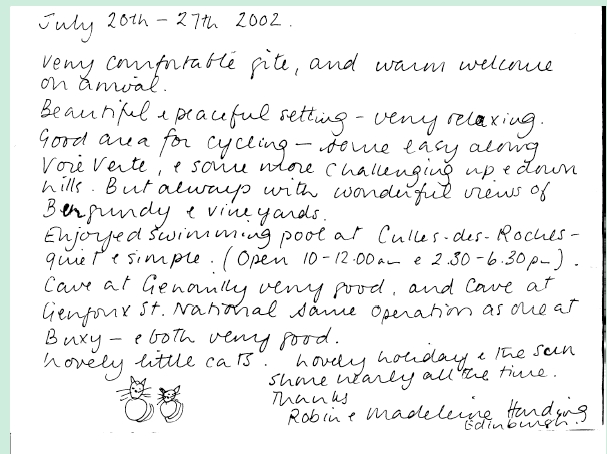 July 20th - 27th 2002.
very comfortable gite, and warm welcome
on arrival.
Beautiful & peaceful setting - very relaxing.
Good area for cycling - some easy along
Voie Verte, & some more challenging up & down
hills. But always with wonderful views of
Burgundy & vineyards.
Enjoyed swimming pool at Culles-des-Roches -
quiet & simple. (Open 10-12.00am & 2.30-6.30pm).
Cave at Genouilly very good, and cave at
St. National same operation as one at
Buxy - & both very good.
Lovely little cats. Lovely holiday & the sun
shone nearly all the time.
Thanks
Robin & Madeleine Harding
Edinburgh.